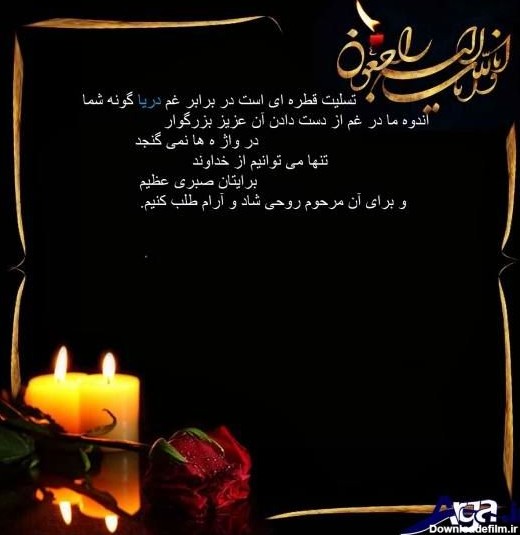 انا لله و انا الیه راجعون
تسلیت قطره ای است در برابر غم دریا گونه شما
اندوه ما در غم از دست دادن آن عزیز بزرگوار
در واژ ه ها نمی گنجد
تنها می توانیم از خداوند
برایتان صبری عظیم
و برای آن مرحوم روحی شاد و آرام طلب کنیم.
Downloadefilm.ir